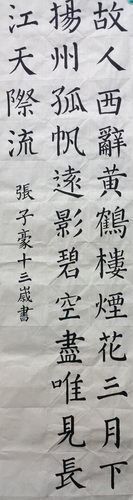 故人西辭黃鶴樓煙花三月下
揚州孤帆遠影碧空盡唯見長
江天際流
張子豪十三歲書